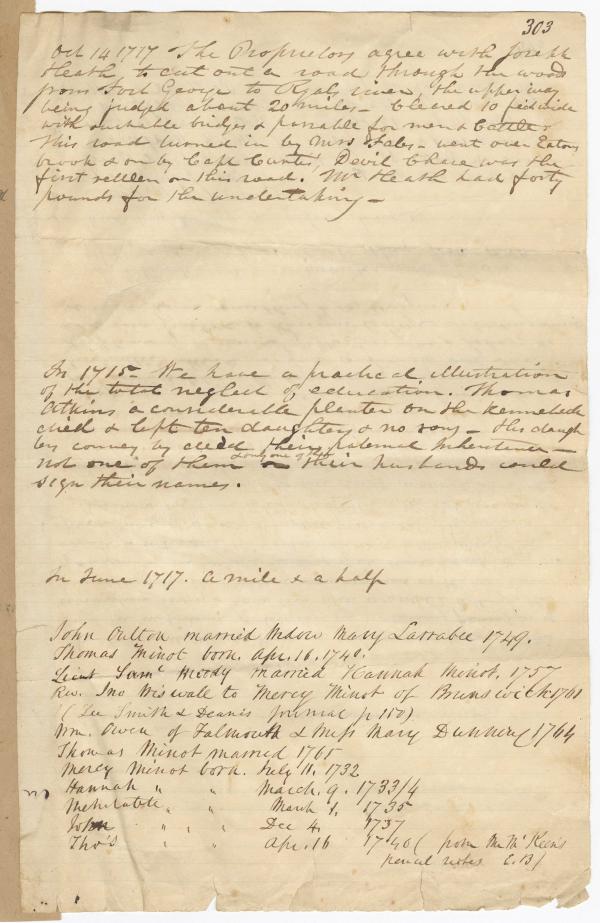 303
Oct 14 1717 The Proprietors agree with Joseph
Heath to cut out a road through the wood
from Fort George to Royals river, the upper way
being judged about 20 miles - Cleared 10 feet wide
with suitable bridges & passable for men & Cattle.
This road turned in by Mrs Fales - went over Eatons
brook & on by Capt Curtis, Devil Chace was the
first settler on this road. Mr Heath had forty
pounds for the undertaking -
In 1715 - We have a practical illustration
of the total neglect of education. Thomas
Atkins a considerable planter on the Kennebeck
died & left ten daughters & no sons - His daugh
ters convey by deed their paternal Inheritance -
& only one of
not one of them or their husbands could
sign their names.
In June 1717. A mile & a half
John Oulton married Widow Mary Larrabee 1749.
Thomas Minot born. Apr. 16. 1740.
Lieut Saml Moody married Hannah Minot. 1757
Rev. Jno Wiswall to Mercy Minot of Brunswick 1761
(See Smith & Deanes Journal p 150)
Wm. Owen of Falmouth & Miss Mary Dunning 1764
Thomas Minot married 1765
Mercy Minot born. July 11. 1732
Hannah " " March. 9. 1733/4
Mehitable " " March 1. 1735
John " " " Dec 4. 1737
Tho's " " Apr. 16 1740 (from Mr McKeen's
pencil notes E. B)